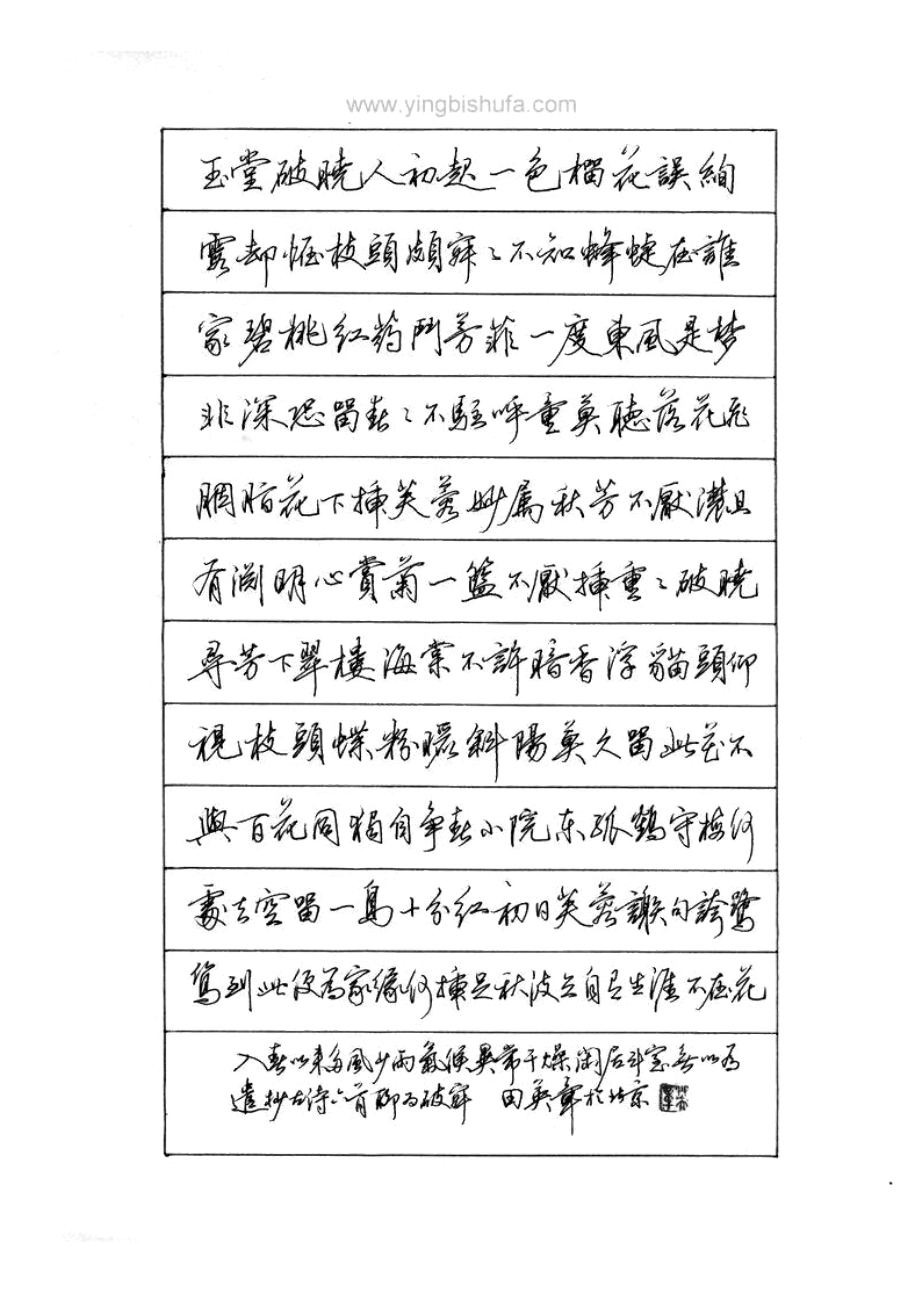 www.yingbishufa.com
玉堂破曉人初起一色榴花誤絢
霞却恠枝頭頗寂〻不知蜂蜨在誰
家碧桃红药鬥芳菲一度東風是梦
非深恐留春〻不駐呼童莫聽落花飛
胭脂花下插芙蓉妙属秋芳不厭濃且
有渊明心賞菊一籃不厭插重〻破曉
尋芳下翠樓海棠不許暗香浮貓頭仰
視枝頭蝶粉暖斜陽莫久留此花不
與百花同獨自争春小院东孤鶴守梅何
處去空留一鳥十分红初日芙蓉謝句誇鷺
鴛到此便為家缘何插足秋波去自是生涯不在花
入春以来多風少雨氣候異常干燥闲居斗室無以为
遣抄古诗六首聊为破寂 田英章於北京